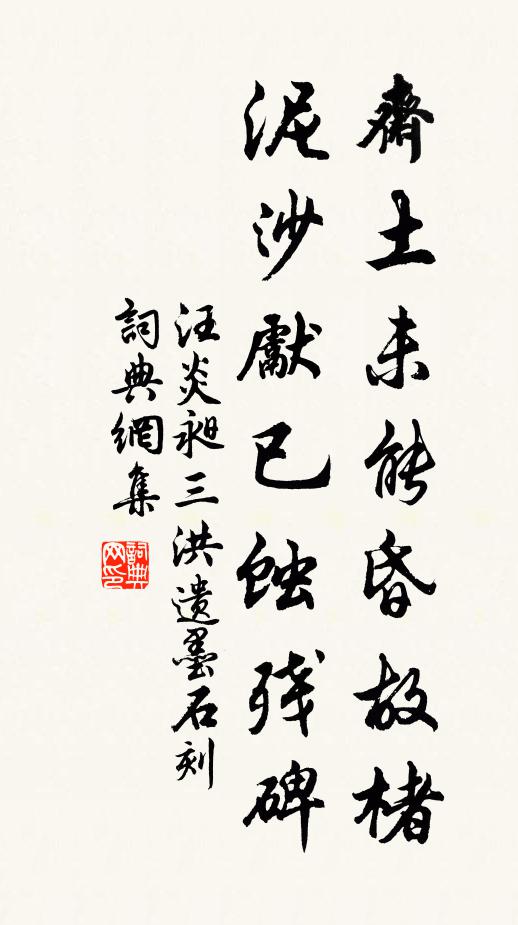 齋土未能昏故楮
泥沙獻已蝕殘碑
汪炎昶三洪遺墨石刻
詞典網集
詞典网印